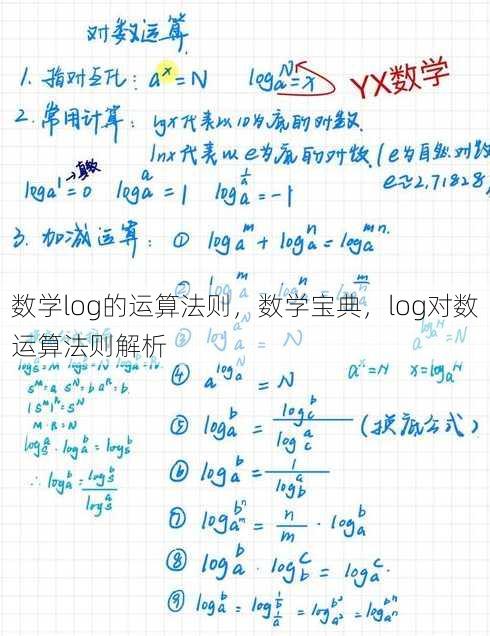 对数运算
1. 指对互化: a^x=N log_a^N=x YX数学
2. 常用计算: lgx代表以10为底的对数.
lnx代表以e为底的对数. (e为自然对数
e≈2.71828,
→真数
log_a^1=0 log_a^a=1 log_a^{1/a}=-1
3. 加减运算: ① log_a^m + log_a^n = log_a^{mn}.
② log_a^m - log_a^n = log_a^{m/n}
数学log的运算法则，数学宝典，log对数
运算法则解析
③ = N a^{log_a^N}=N
④ a^{log_a^N} = N a^x=N x=log_a^N
⑤ log_a^b = log_c^b / log_c^a (换底公式)
⑥ log_a^b = 1 / log_b^a
⑦ log_{a^m}^{b^n} = n/m · log_a^b
⑧ log_a^b · log_b^c = log_a^c.
⑨ log_a^b = log_{1/a}^{1/b} = log_{a^2}^{b^2} = log_{a^n}^{b^n}
M·R=N
log_s^a · log_a^b = log_s^b
∴ log_a^b = log_s^b / log_s^a